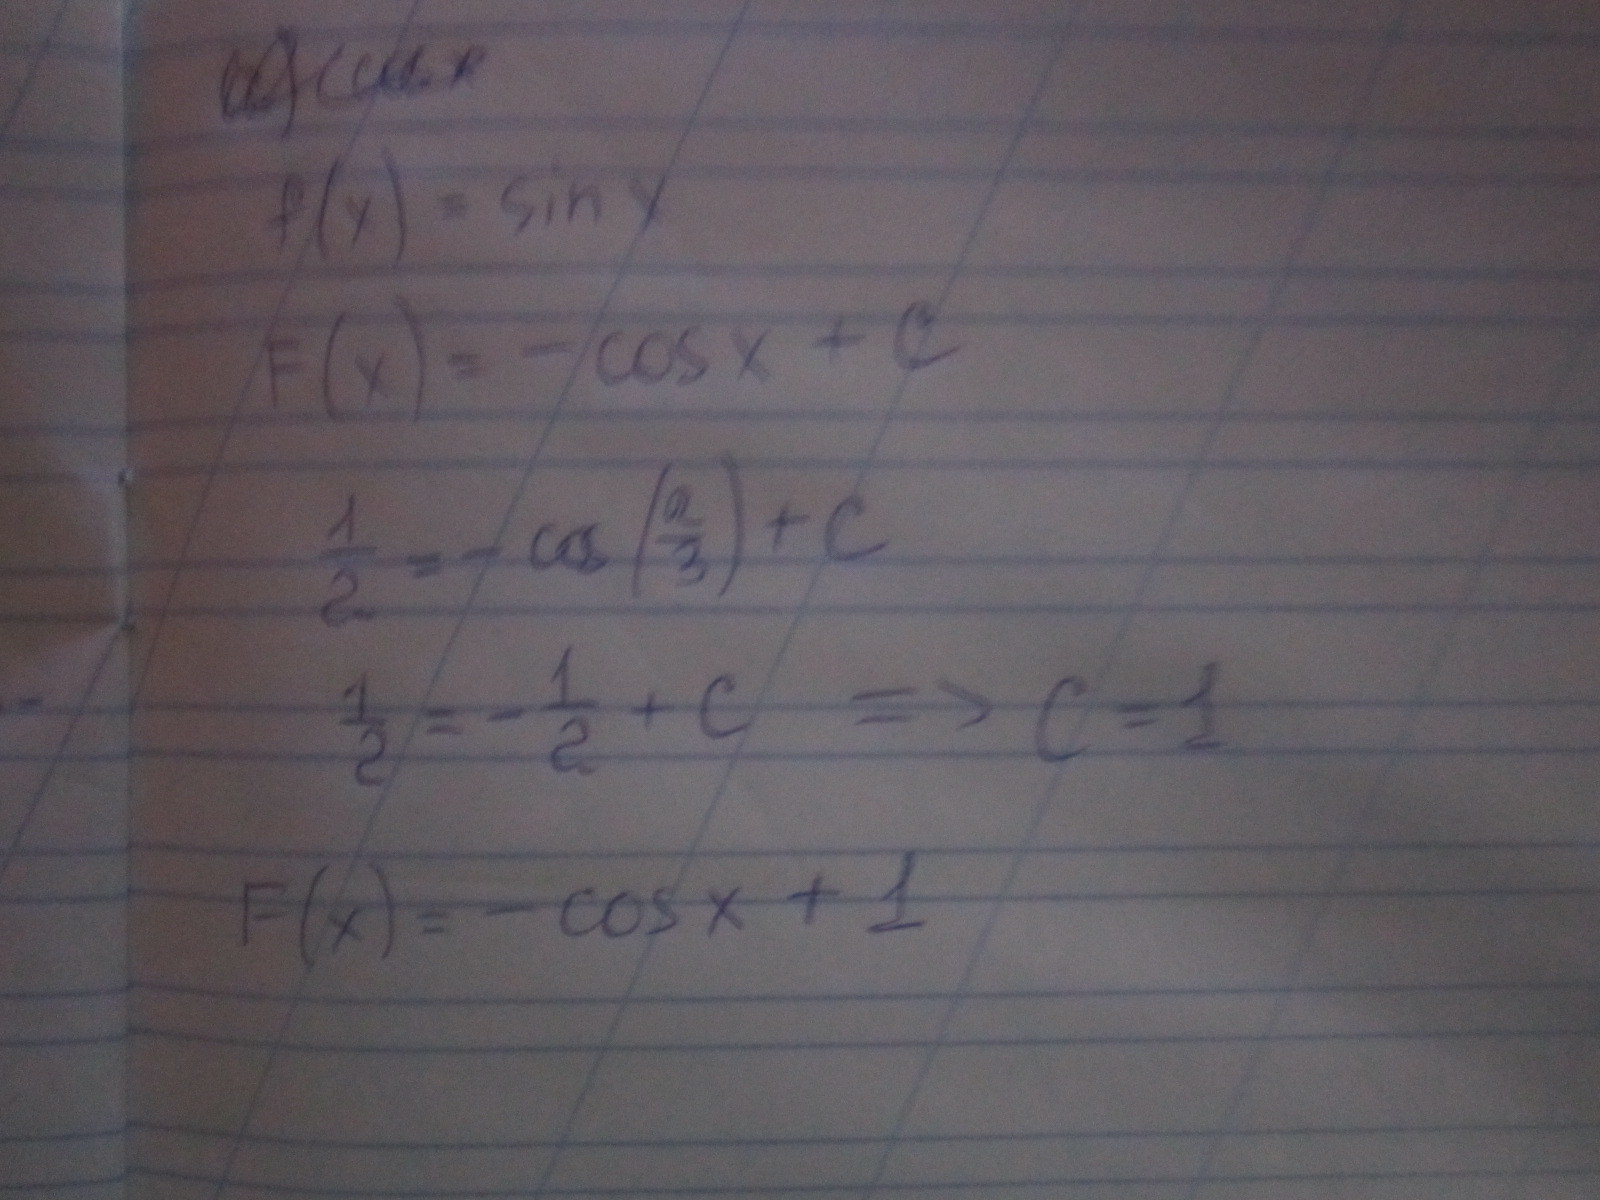 f(x) = sin x
F(x) = - cos x + C
1/2 = - cos (π/3) + C
1/2 = - 1/2 + C => C = 1
F(x) = - cos x + 1